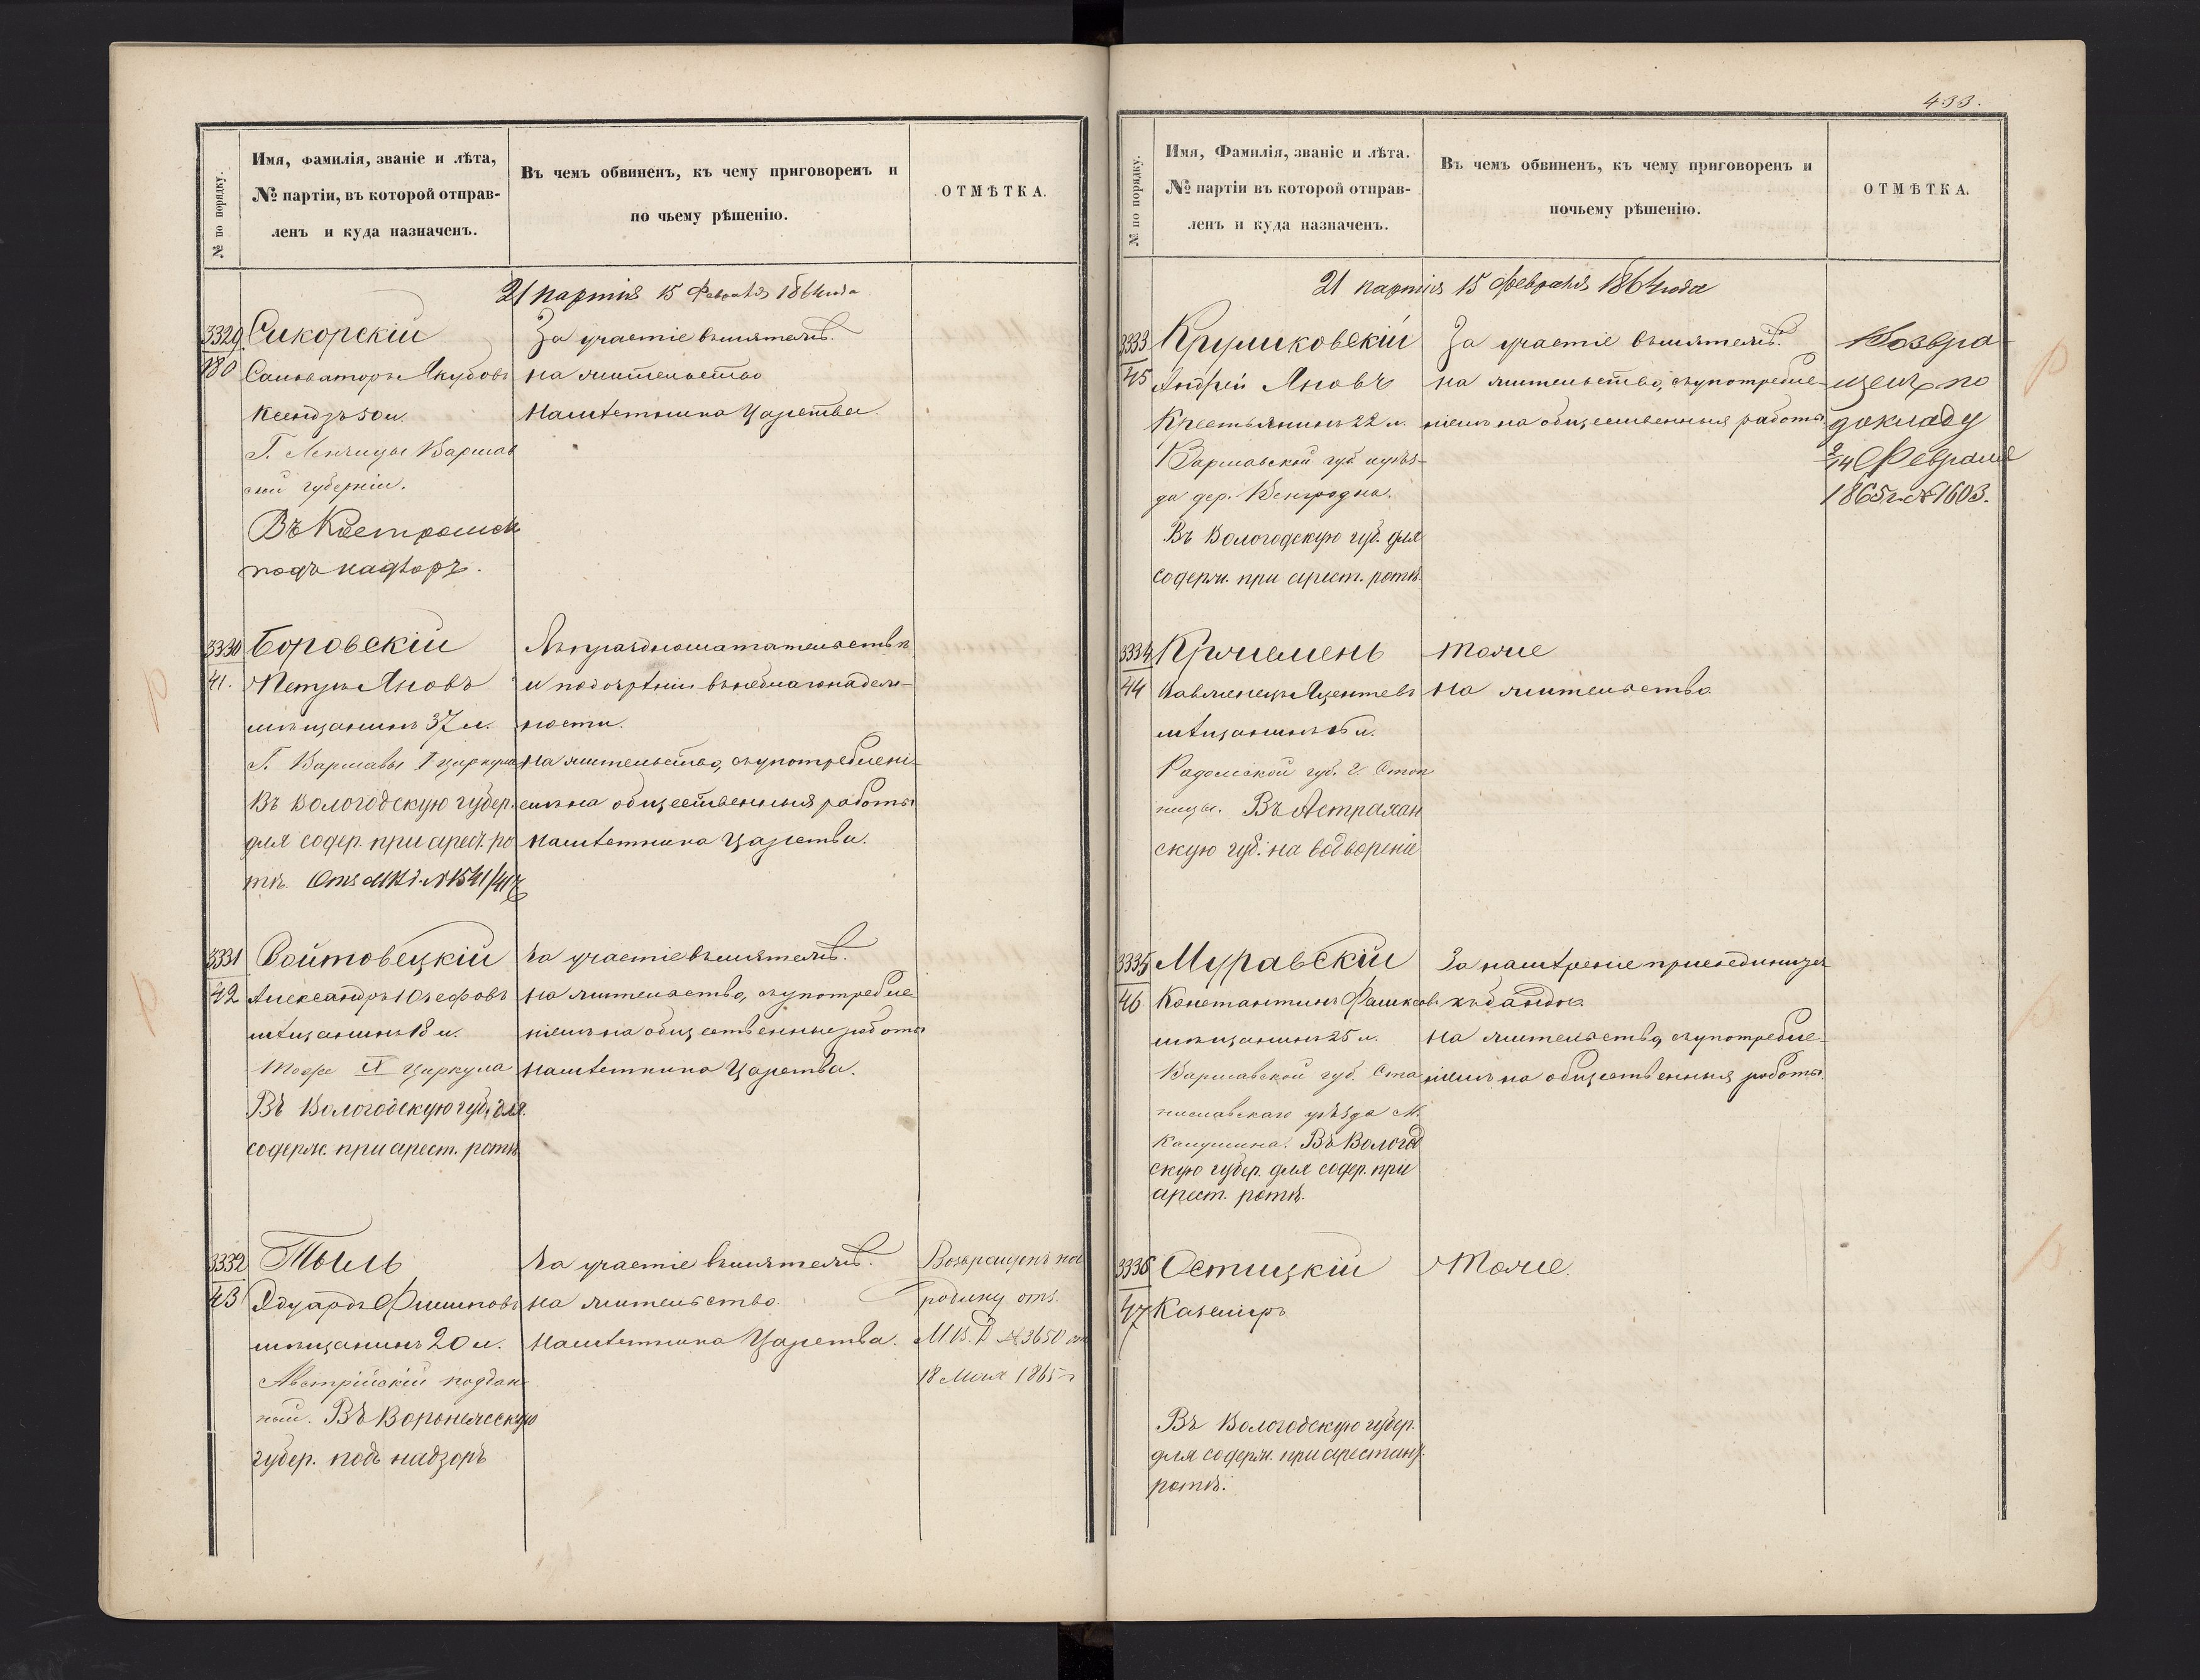 № по порядку.
Имя, фамилія, званіе и лѣта,
№ партіи, въ которой отправ-
ленъ и куда назначенъ.
Въ чемъ обвиненъ, къ чему приговоренъ и
по чьему рѣшенію.
ОТМѢТКА.
21 партія 15 Февраля 1864 года
3329
Сикорскій
За участіе въ мятежѣ.
Сальваторъ Якубовъ
на жительство
Ксендзъ 50 л.
Намѣстника Царства.
Г. Ленчицы Варшав
ской губерніи.
Въ Костромск
подъ надзоръ.
3330
41.
Боровскій
Петръ Яновъ
и подозрѣніи въ неблагонадеж-
мѣщанинъ 37 л.
ности.
Г. Варшавы I циркула
на жительство, съ употребленi-
Въ Вологодскую губер.
емъ на общественныя работы
для содер. при арест. ро
Намѣстника Царства.
тѣ. Отз МВД. № 1541/417
3331
42
Войтовецкій
За участіе въ мятежѣ.
Александръ Юзефовъ
на жительство, съ употребле-
мѣщанинъ 18 л.
ніемъ на общественные работы
Тоже циркула
Намѣстника Царства.
Въ Вологодскую губ. для
содерж. при арест. ротѣ
3332
43
Тыль
За участіе въ мятежѣ.
Возвращенъ на
Эдуардъ
на жительство.
родину отз.
мѣщанинъ 20 л.
Намѣстника Царства.
М.В.Д № 3650
Австрійскій поддан-
18 1865 г
ный. Въ Воронежскую
губер. подъ надзоръ
433.
№ по порядку.
Имя, Фамилія, званіе и лѣта.
№ партіи въ которой отправ-
ленъ и куда назначенъ.
Въ чемъ обвиненъ, къ чему приговоренъ и
почьему рѣшенію.
ОТМѢТКА.
21 партія 15 Февраля 1864 года
3333
45
Крушковскій
За участіе въ мятежѣ.
Возвра-
Андрей Яновъ
на жительство, съ употребле-
щенъ по
Крестьянинъ 22 л.
ніемъ на общественныя работы
докладу
Варшавской губ. и уѣз-
2/14 Февраля
да дер. Венгродна.
1865 г. № 1603.
Въ Вологодскую губ. для
содерж. при арест. ротѣ.
3334
44
тоже
на жительство
мѣщанинъ л.
Радомской губ. г. Стоп
ницы. Въ Астрахан
скую губ. на водвореніе
3335
46
Муравскій
За намѣреніе присоединиться
Константинъ
къ бандѣ
мѣщанинъ 25 л.
на жительство, съ употребле-
Варшавской губ. Ста
ніемъ на общественныя работы.
ниславскаго уѣзда М.
Въ Вологод
скую губер. для содер. при
арест. ротѣ.
3336
47
Остицкій
Тоже.
Казиміръ
Въ Вологодскую губер.
для содерж. при арестант.
ротѣ.